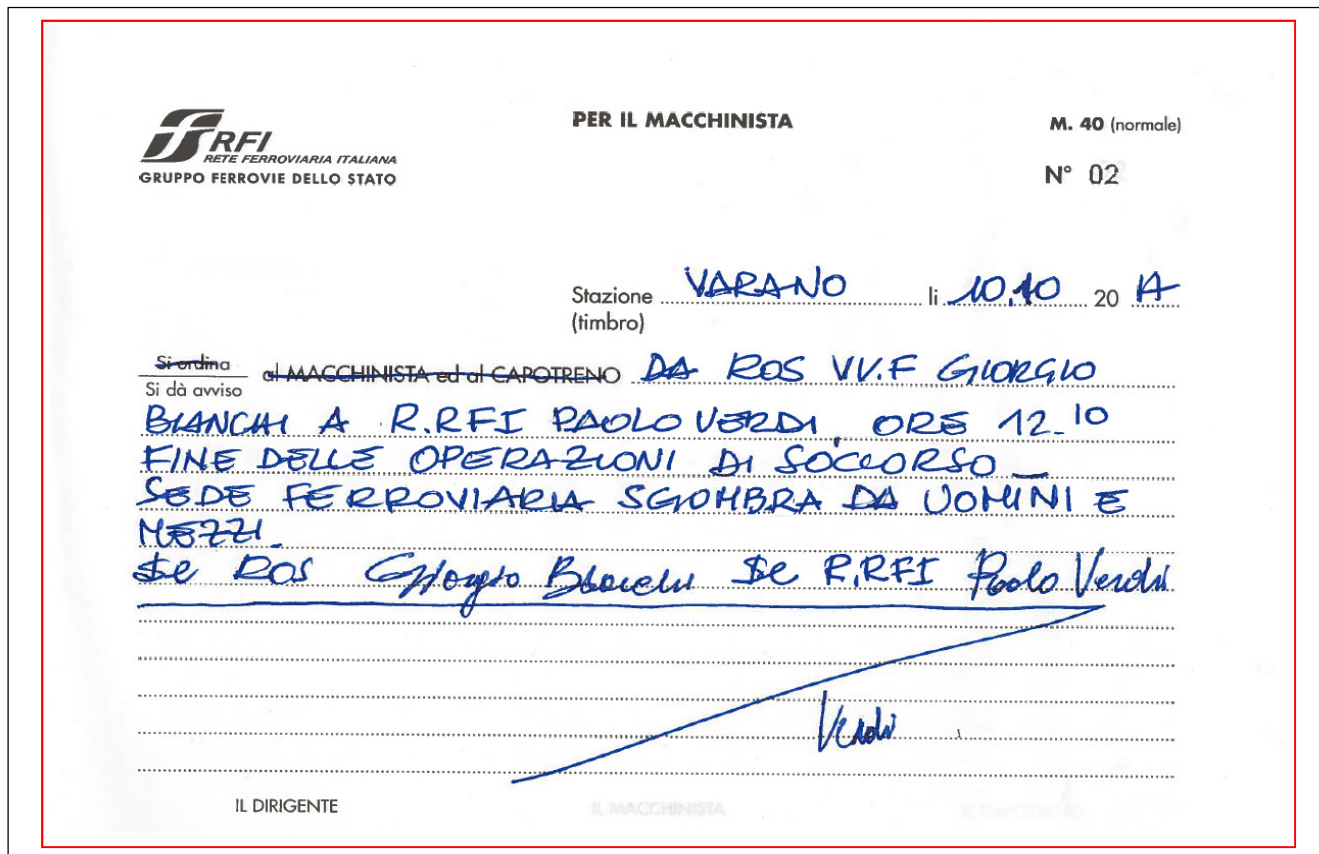 RFI
RETE FERROVIARIA ITALIANA
GRUPPO FERROVIE DELLO STATO
PER IL MACCHINISTA
M. 40 (normale)
N° 02
Stazione VARANO li 10.10 20 14
(timbro)
Si ordina
Si dà avviso
al MACCHINISTA ed al CAPOTRENO DA ROS VV.F GIORGIO
BIANCHI A R.RFI PAOLO VERDI, ORE 12.10
FINE DELLE OPERAZIONI DI SOCCORSO_
SEDE FERROVIARIA SGOMBRA DA UOMINI E
MEZZI_
Il ROS Giorgio Bianchi Il R.RFI Paolo Verdi
Verdi
IL DIRIGENTE
IL MACCHINISTA
IL CAPOTRENO